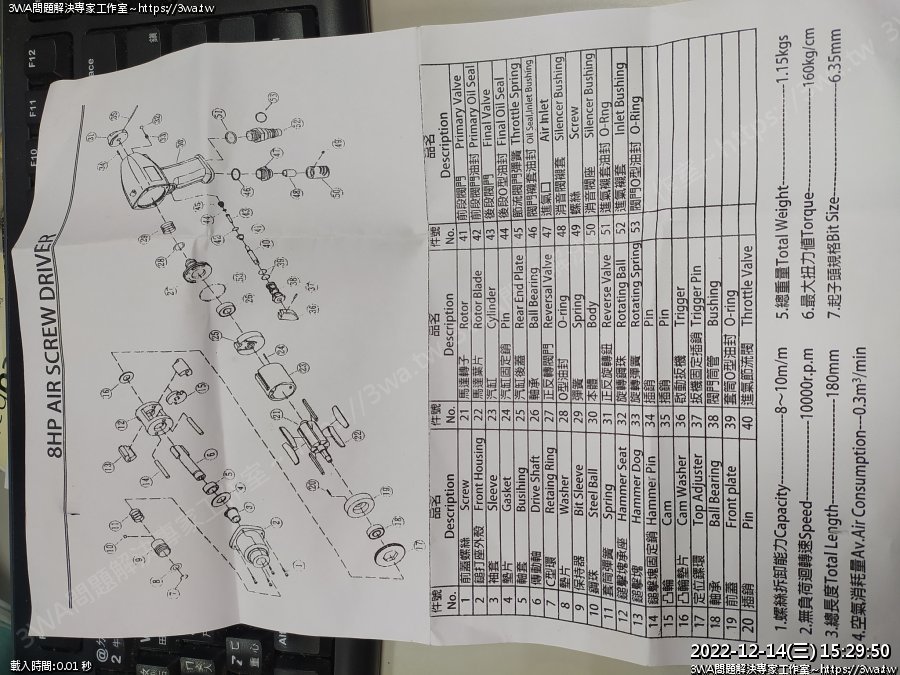 3WA問題解決專家工作室~https://3wa.tw
3WA問題解決專家工作室~https://3wa.tw
8HP AIR SCREW DRIVER
件號 品名
No. Description
1 前蓋螺絲 Screw
2 鎚打座外殼 Front Housing
3 袖套 Sleeve
4 墊片 Gasket
5 軸套 Bushing
6 傳動軸 Drive Shaft
7 C型環 Retaing Ring
8 墊片 Washer
9 保持器 Bit Sleeve
10 鋼珠 Steel Ball
11 套筒彈簧 Spring
12 鎚擊塊承座 Hammer Seat
13 鎚擊塊 Hammer Dog
14 鎚擊塊固定銷 Hammer Pin
15 凸輪 Cam
16 凸輪墊片 Cam Washer
17 定位鑼環 Top Adjuster
18 軸承 Ball Bearing
19 前蓋 Front plate
20 插銷 Pin
件號 品名
No. Description
21 馬達轉子 Rotor
22 馬達葉片 Rotor Blade
23 汽缸 Cylinder
24 汽缸固定銷 Pin
25 汽缸後蓋 Rear End Plate
26 軸承 Ball Bearing
27 正反轉閥門 Reversal Valve
28 O型油封 O-ring
29 彈簧 Spring
30 本體 Body
31 正反旋轉鈕 Reverse Valve
32 旋轉鋼珠 Rotating Ball
33 旋轉彈簧 Rotating Spring
34 插銷 Pin
35 插銷 Pin
36 啟動扳機 Trigger
37 扳機固定插銷 Trigger Pin
38 閥門筒管 Bushing
39 套筒O型油封 O-ring
40 進氣節流閥 Throttle Valve
件號 品名
No. Description
41 前段閥門 Primary Valve
42 前段閥門油封 Primary Oil Seal
43 後段閥門 Final Valve
44 後段O型油封 Final Oil Seal
45 節流閥門彈簧 Throttle Spring
46 閥門襯套油封 Oil Seal,Inlet Bushing
47 進氣口 Air Inlet
48 消音閥襯套 Silencer Bushing
49 螺絲 Screw
50 消音閥座 Silencer Bushing
51 進氣襯套油封 O-Rng
52 進氣襯套 Inlet Bushing
53 閥門O型油封 O-Ring
1.螺絲拆卸能力Capacity----------8~10m/m
2.無負荷迴轉速Speed----------10000r.p.m
3.總長度Total Length----------180mm
4.空氣消耗量Av.Air Consumption---0.3m³/min
5.總重量Total Weight----------1.15kgs
6.最大扭力值Torque----------160kg/cm
7.起子頭規格Bit Size----------6.35mm
2022-12-14(三) 15:29:50
載入時間:0.01 秒
3WA問題解決專家工作室~https://3wa.tw